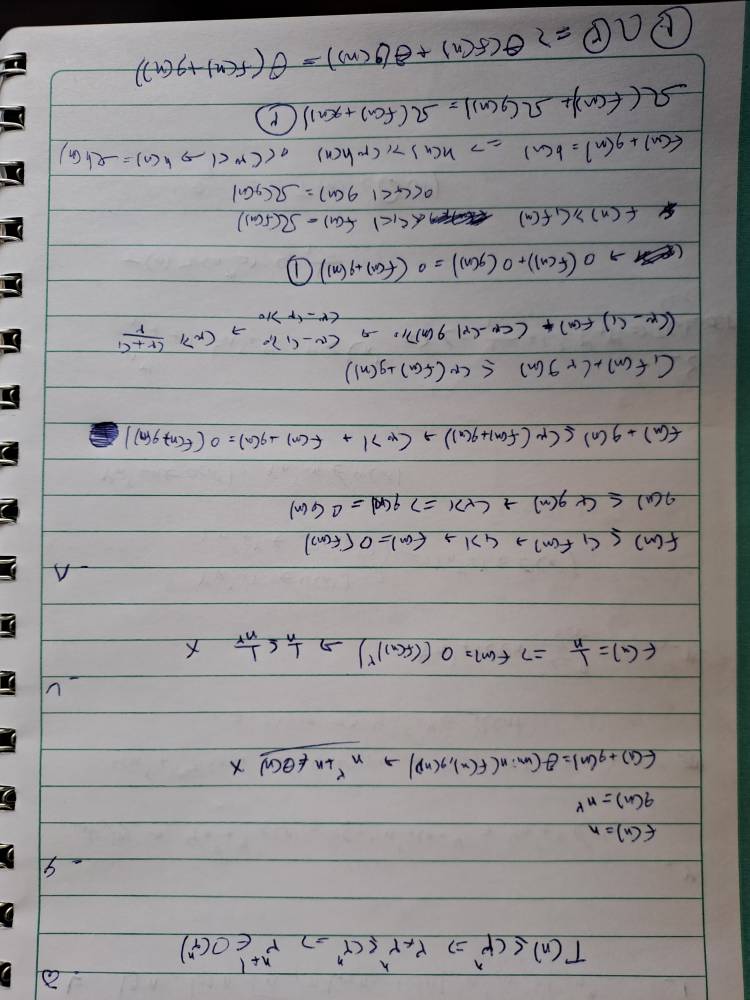 ۵-
T(n) ≤ c۲ⁿ => ۲×۲ⁿ ≤ c۲ⁿ => ۲ⁿ⁺¹ ∈ O(۲ⁿ)
۶-
f(n)=n
g(n)=n^۲
f(n)+g(n)=θ(min(f(n),g(n))) → n^۲+n ≠ θ(n) ×
۷-
f(n)=1/n => f(n)=O((f(n))^۲) → 1/n ≤ 1/n^۲ ×
۸-
f(n) ≤ C₁f(n) → C₁>1 → f(n)=O(f(n))
g(n) ≤ C۲g(n) → C۲>1 => g(n)=O(g(n))
f(n)+g(n) ≤ C۳(f(n)+g(n)) → C۳>1 → f(n)+g(n)=O(f(n)+g(n))
C₁f(n)+C۲g(n) ≤ C۳(f(n)+g(n))
(C۳-C₁)f(n)+(C۳-C۲)g(n)≥0 → C۳-C₁≥0 C۳-C۲≥0 → C۳≥(C۲+C₁)/۲
→ O(f(n))+O(g(n))=O(f(n)+g(n)) ①
f(n)≥C₁f(n) 0<C₁<1 f(n)=Ω(f(n))
0<C۲<1 g(n)=Ω(g(n))
f(n)+g(n)=h(n) => h(n)≥C۳h(n) 0<C۳<1 → h(n)=Ωh(n)
Ω(f(n))+Ω(g(n))=Ω(f(n)+g(n)) (۲)
(۱)∩(۲) => θ(f(n))+θ(g(n))=θ(f(n)+g(n))